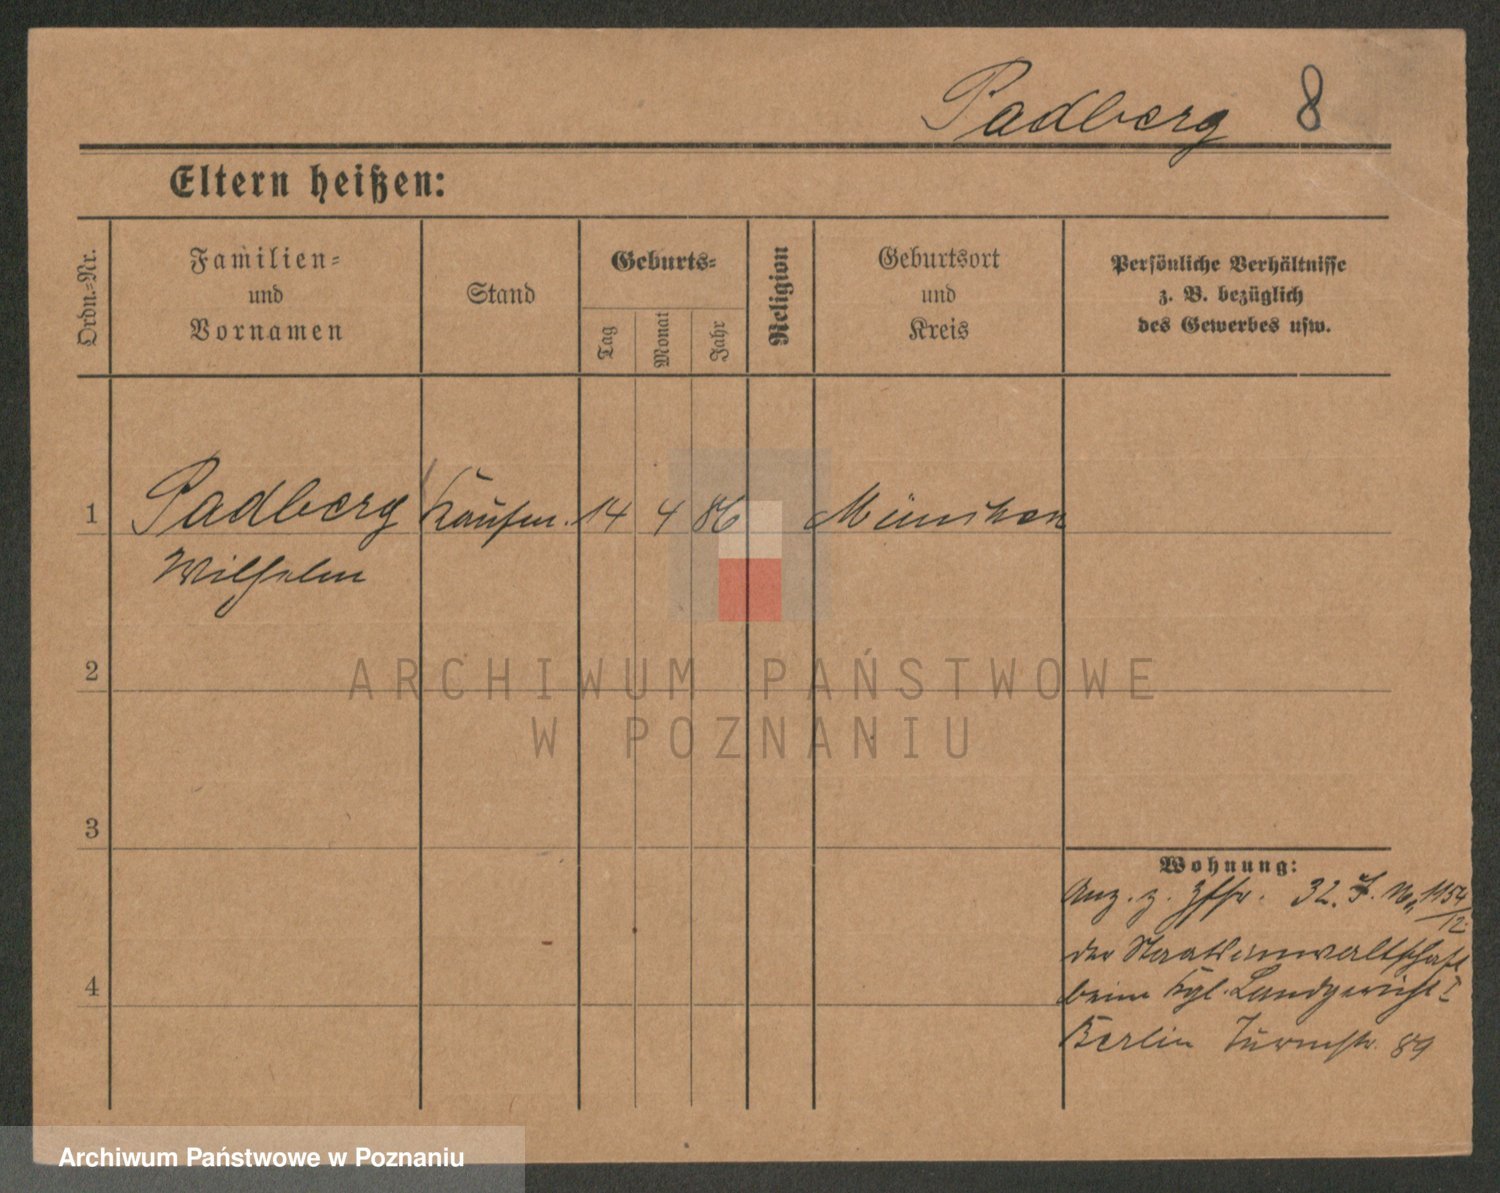 Padberg 8
Eltern heißen:
Ordn.-Nr.
Familien-
und
Vornamen
Stand
Geburts-
Tag
Monat
Jahr
Religion
Geburtsort
und
Kreis
Persönliche Verhältnisse
z. B. bezüglich
des Gewerbes usw.
1 Padberg Kaufm. 14 4 86 München
Wilhelm
2
3
4
Wohnung:
Anz. z. 32. J. No 1154/12
der Staatsanwaltschaft
beim Kgl. Landgericht I
Berlin Turmstr. 89
ARCHIWUM PAŃSTWOWE
W POZNANIU
Archiwum Państwowe w Poznaniu